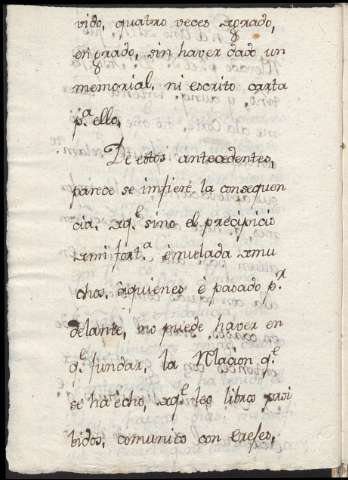 vido, quatro veces xogado,
en grado, sin haver dado un
memorial, ni escrito carta
p.ª ello,
De estos antecedentes,
parece se infiere, la consequen
cia, xq.ͤ sino el precipicio
xmi fort.ª, èmulada xmu
chos, àquienes è pasado p.ʳ
delante, no puede haver en
q.ͤ fundar, la Relacion q.ͤ
se ha echo, xq.ͤ leo libros proi
bidos, comunico con Erejes,